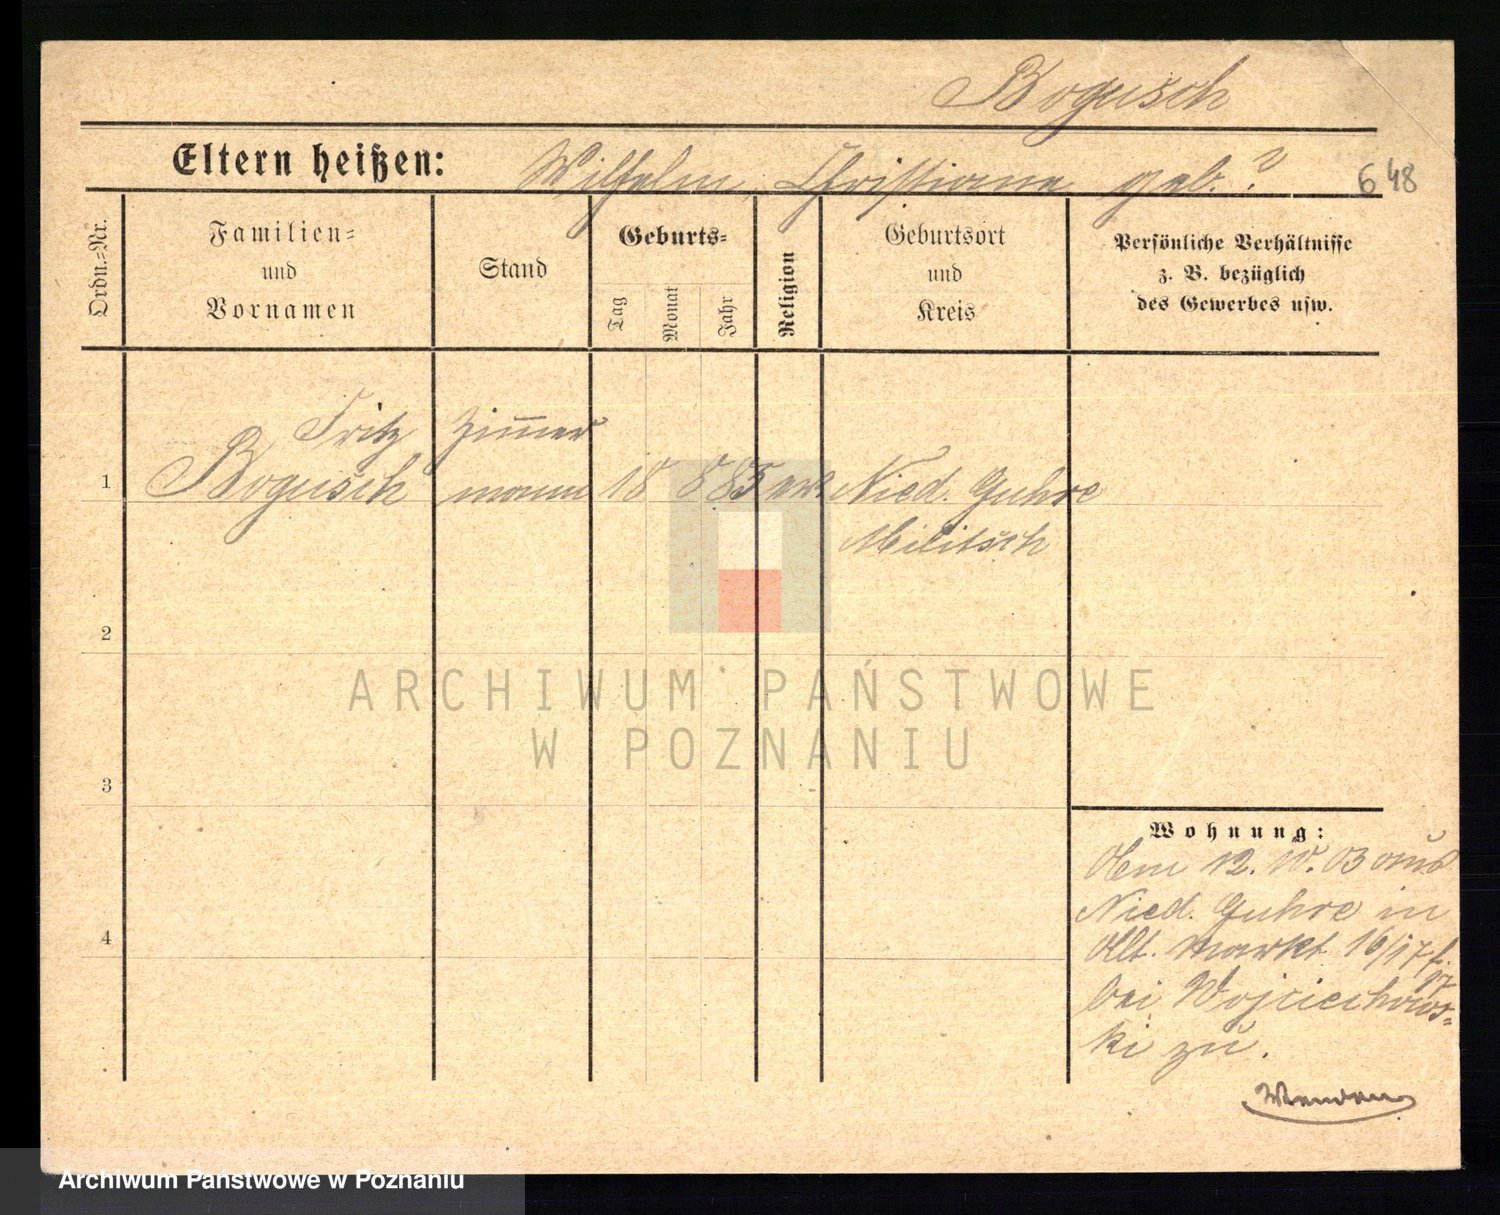 Bogusch
Eltern heißen: Wilhelm, Christiane geb. ?
648
Ordn.-Nr.
Familien-
und
Vornamen
Stand
Geburts-
Tag
Monat
Jahr
Religion
Geburtsort
und
Kreis
Persönliche Verhältnisse
z. B. bezüglich
des Gewerbes usw.
Fritz Zim̄er
1 Bogusch mann 18 8 85 ev. Nied. Guhre
Militsch
2
ARCHIWUM PAŃSTWOWE
W POZNANIU
3
Wohnung:
Am 12. 10. 03 aus
Nied. Guhre in
4
Alt. Markt 16/17 f.
bei Wojciechows-
ki zu.
Archiwum Państwowe w Poznaniu